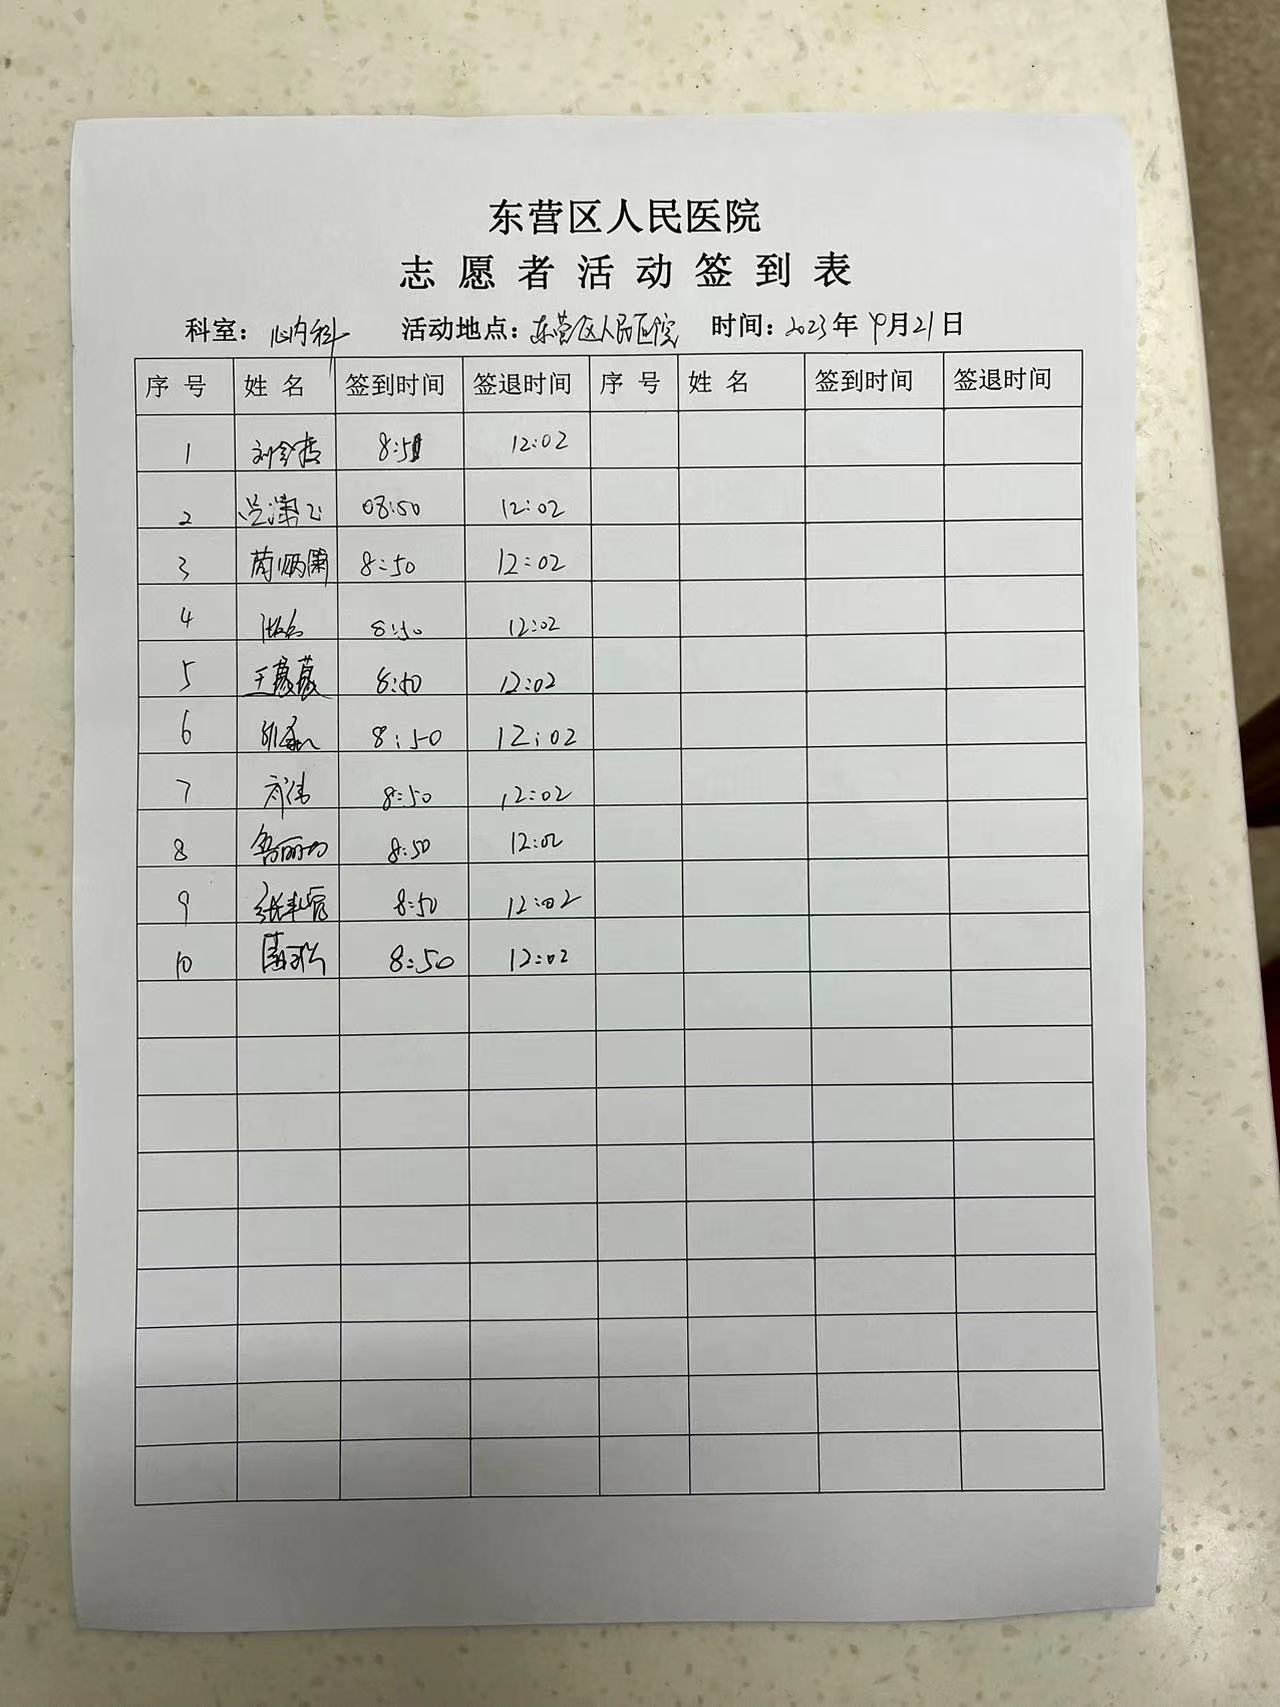 东营区人民医院
志愿者活动签到表
科室：心内科 活动地点：东营区人民医院 时间：2023年9月21日
序号 姓名 签到时间 签退时间 序号 姓名 签到时间 签退时间
1 12:02
2 08:50 12:02
3 8:50 12:02
4 8:50 12:02
5 王薇薇 8:50 12:02
6 8:50 12:02
7 8:50 12:02
8 8:50 12:02
9 8:50 12:02
10 8:50 12:02